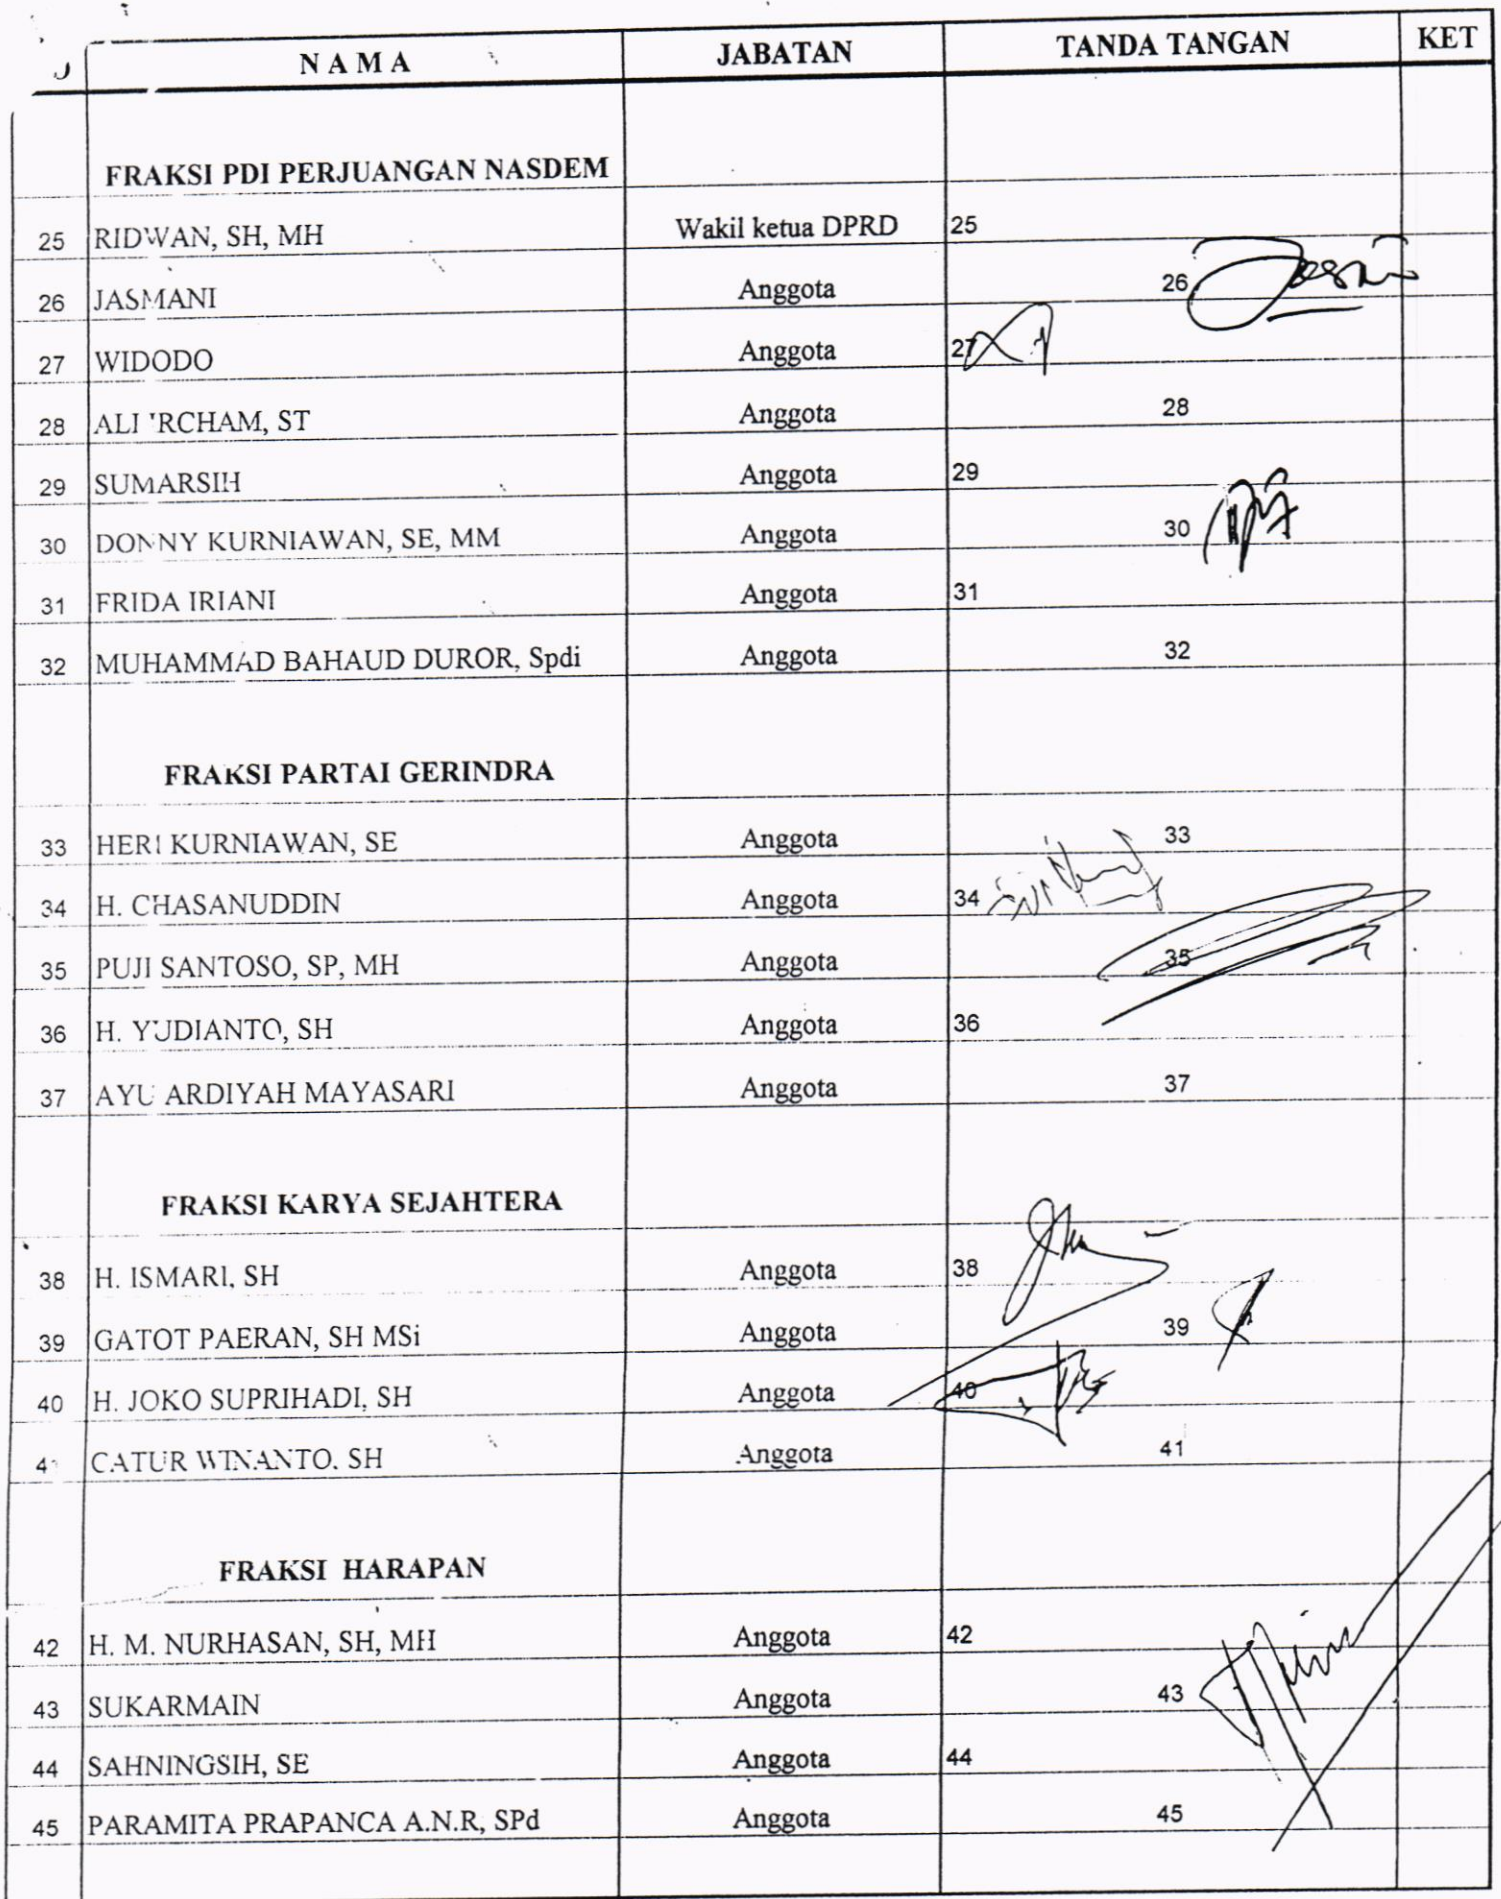 N A M A JABATAN TANDA TANGAN KET
FRAKSI PDI PERJUANGAN NASDEM
25 RIDWAN, SH, MH Wakil ketua DPRD 25
26 JASMANI Anggota 26
27 WIDODO Anggota 27
28 ALI Anggota 28
ST
29 SUMARSIH Anggota 29
30 DONNY KURNIAWAN, SE, MM Anggota 30
31 FRIDA IRIANI Anggota 31
32 MUHAMMAD BAHAUD DUROR, Spdi Anggota 32
FRAKSI PARTAI GERINDRA
33 HERI KURNIAWAN, SE Anggota 33
34 H. CHASANUDDIN Anggota 34
35 PUJI SANTOSO, SP, MH Anggota 35
36 H. YUDIANTO, SH Anggota 36
37 AYU ARDIYAH MAYASARI Anggota 37
FRAKSI KARYA SEJAHTERA
38 H. ISMARI, SH Anggota 38
39 GATOT PAERAN, SH MSi Anggota 39
40 H. JOKO SUPRIHADI, SH Anggota 40
41 CATUR WINANTO. SH Anggota 41
FRAKSI HARAPAN
42 H. M. NURHASAN, SH, MH Anggota 42
43 SUKARMAIN Anggota 43
44 SAHNINGSIH, SE Anggota 44
45 PARAMITA PRAPANCA A.N.R, SPd Anggota 45